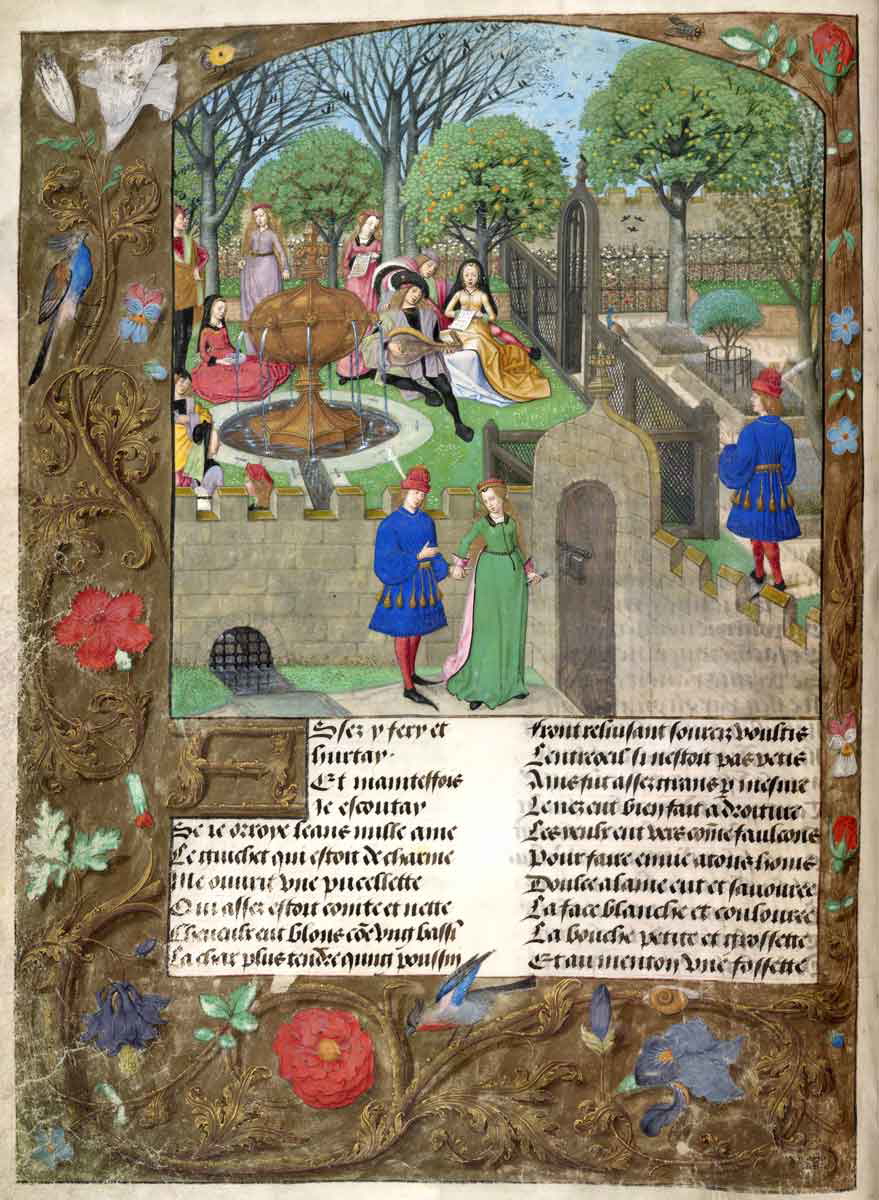 Assez y fery et
hurtay.
Et maintesfois
Je escoutay
Se ie orroye leans nulle ame
Le guichet qui estoit de charme
Me ouurit vne pucellette
Qui assez estoit cointe et nette
Cheueulx eut blons cõe vng bassĩ
La char plus tendre qung poussin
Front reluisant sourcix voultis
Lentreoeil si nestoit pas petis
Ains fut assez grans p mesure
Le nez eut bien fait a droiture
Les yeulx eut vers cõme faulcons
Pour faire enuie a tous homs
Doulce alaine eut et sauouree
La face blanche et coulouree
La bouche petite et grossette
Et au menton vne fossette